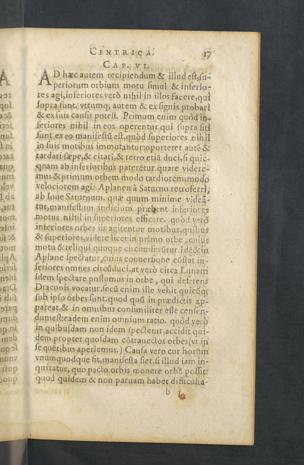 CENTRICA. 37
CAP. VI.
AD hæc autem recipiendum & illud est, su-
periorum orbium motu simul & inferio-
res agi, inferiores verò nihil in illos facere, qui
supra sunt, vtrumq; autem & ex signis probari
& ex suis causis potest. Primum enim quòd in-
feriores nihil in eos operentur qui supra siti
sunt ex eo manifestũ est, quòd superiores nihil
in suis motibus immutantur: oporteret autẽ &
tardari sæpe, & citari, & retro etiã duci, si quic-
quam ab inferioribus paterẽtur, quare videre-
mus & primum orbem modò tardiorem modò
velociorem agi: Aplanen à Saturno retroferri,
ab Ioue Saturnum. quæ quum minime videã-
tur, manifestum indicium præbent inferiores
motus nihil in superiores efficere. quòd verò
inferiores orbes iis agitentur motibus, quibus
& superiores, videre licet in primo orbe, cuius
motu & reliqui quinque circunferuntur. Idẽ & in
Aplane spectatur, cuius conuersione cõstat in-
feriores omnes circũduci, at verò circa Lunam
idem spectare possumus in orbe, qui deferens
Draconis vocatur, secũ enim ille vehit quicũq;
sub ipso orbes sunt, quod
pareat, & in omnibus conuinciture
dum est eadem enim omnium ratio. quòd verò
in quibusdam non idem spectetur, accidit qui-
dem propter quosdam cõtrauectos orbes, vt in
sequẽtibus aperiemus. Causa vero cur horum
vnumquodque fit, manifesta fiet, si illud iam in-
quod quidem & non paruam habet difficulta-
b